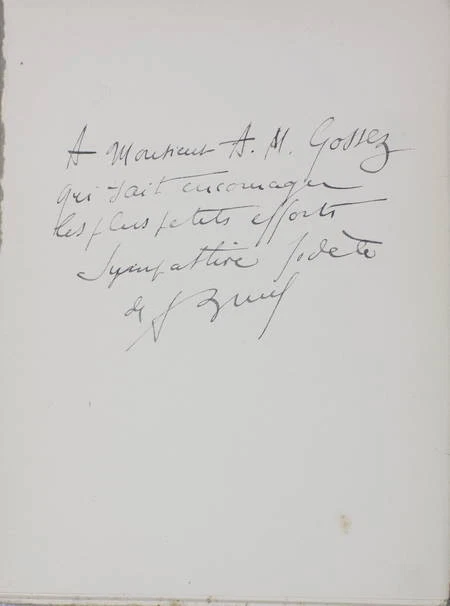 A Monsieur A. M. Gossez
qui sait encourager
les plus petits efforts
Sympathie fidèle
de